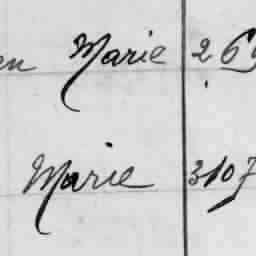 en Marie 269
Marie 3107